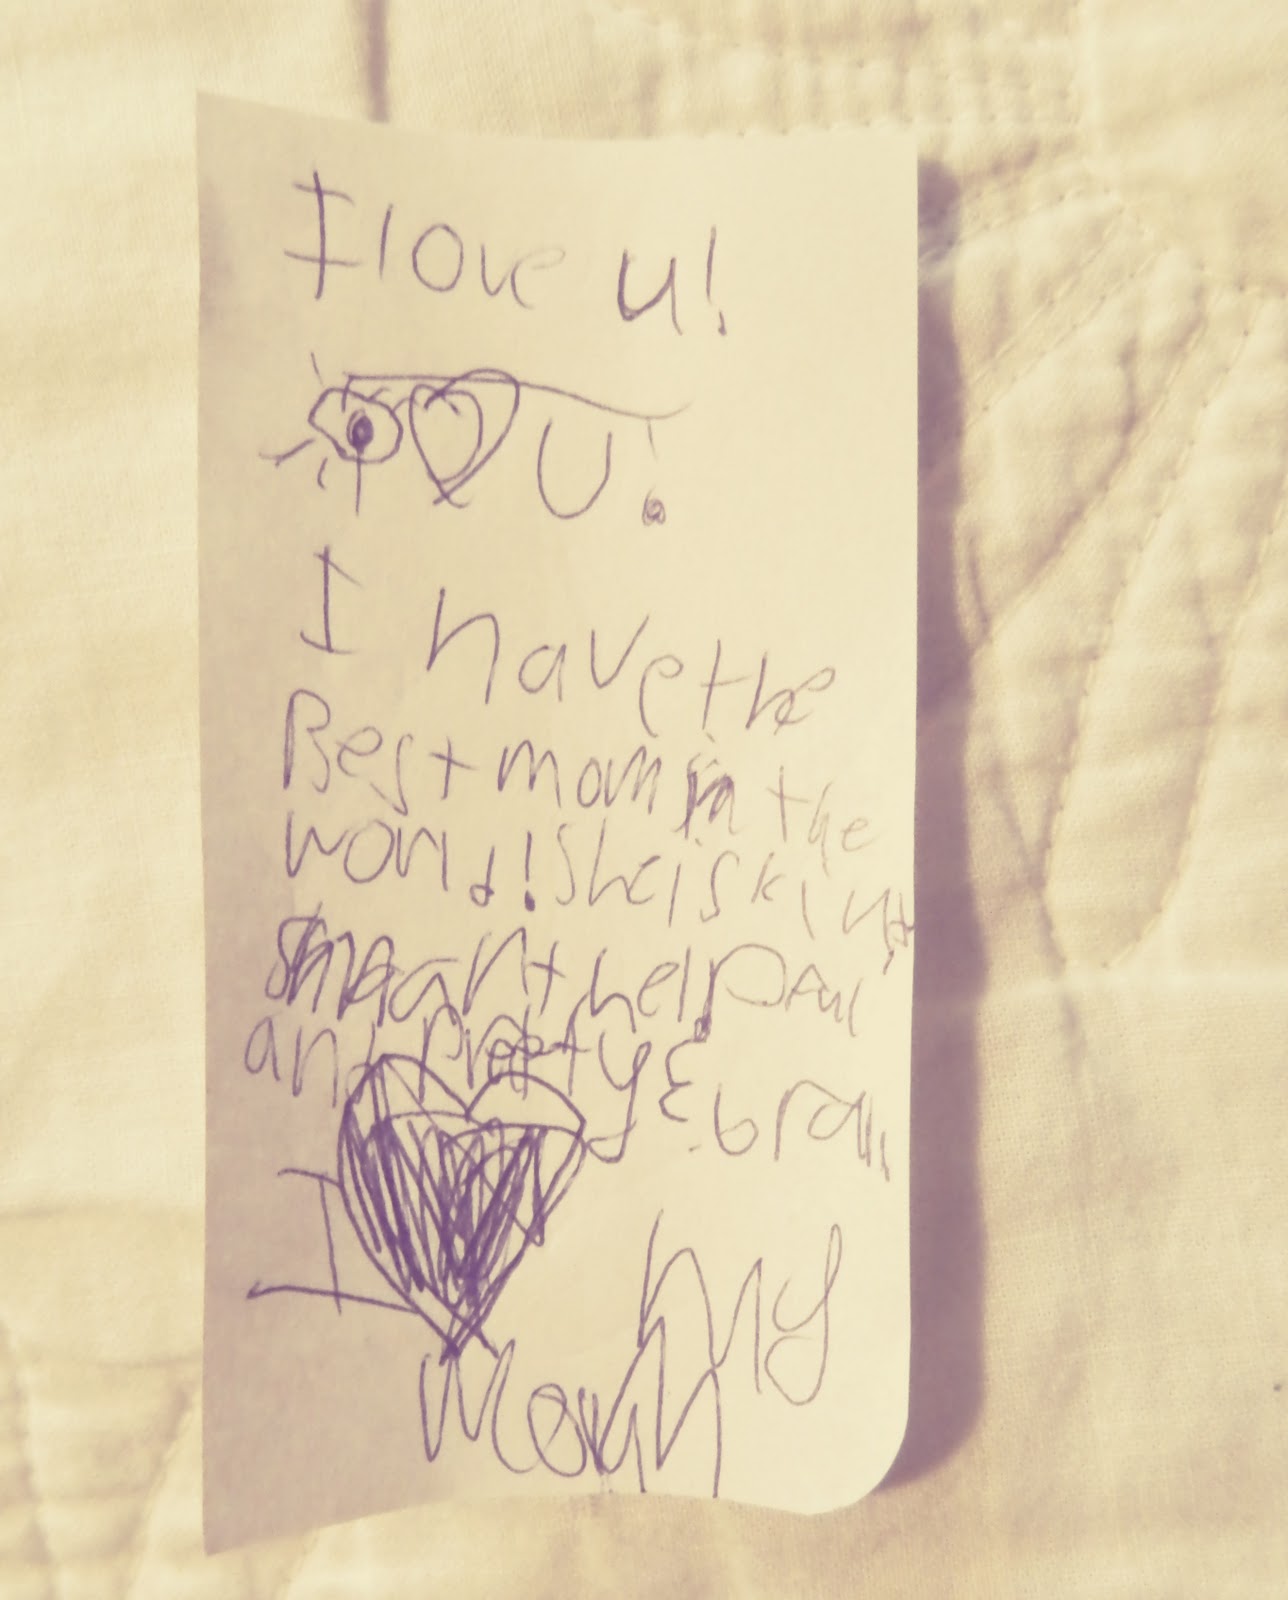 I love u!
U!
I have the
Best mom in the
world! She is kind,
smart helpful
and pretty &
I my
mom